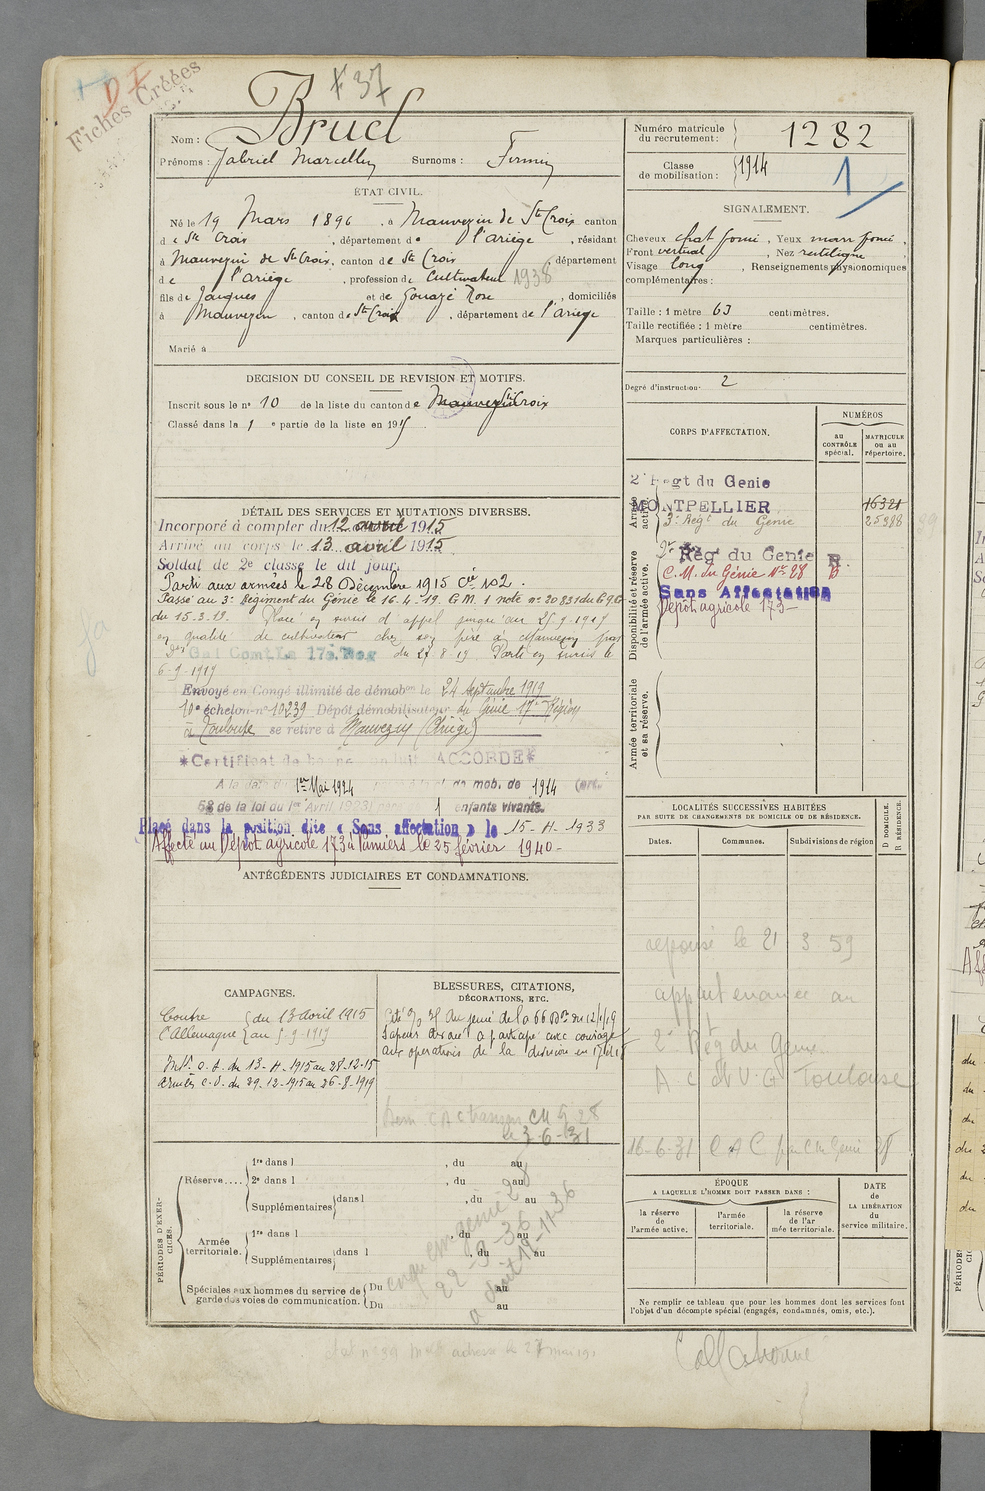 Fiches Créées
D F
F 37
Bruel
Nom :
Prénoms : Gabriel Marcellin Surnoms : Firmin
Numéro matricule du recrutement : 1282
Classe de mobilisation : 1914
1
ÉTAT CIVIL.
Né le 19 Mars 1896, à Mauvezin de Ste Croix canton
de Ste Croix, département de l'ariège, résidant
à Mauvezin de Ste Croix, canton de Ste Croix, département
de l'ariège, profession de Cultivateur 1938
fils de Jacques et de Gouazé Rose, domiciliés
à Mauvezin, canton de Ste Croix, département de l'ariège
Marié à
SIGNALEMENT.
Cheveux chat foncé, Yeux marr foncé,
Front vertical, Nez rectiligne,
Visage long, Renseignements physionomiques
complémentaires :
Taille : 1 mètre 63 centimètres.
Taille rectifiée : 1 mètre centimètres.
Marques particulières :
Degré d'instruction 2
DECISION DU CONSEIL DE REVISION ET MOTIFS.
Inscrit sous le n° 10 de la liste du canton de Mauvezin Ste Croix
Classé dans la 1e partie de la liste en 1915
CORPS D'AFFECTATION.
NUMÉROS
au CONTRÔLE spécial.
MATRICULE ou au répertoire.
Armée active.
2e Regt du Genie
MONTPELLIER 16321
3e Regt du Genie 25388
Disponibilité et réserve de l'armée active.
2e Reg du Genie R
C. M. du Génie No 28 B
Sans Affectation
Dépôt agricole 173
Armée territoriale et sa réserve.
DÉTAIL DES SERVICES ET MUTATIONS DIVERSES.
Incorporé à compter du 12 avril 1915
Arrivé au corps le 13 avril 1915
Soldat de 2e classe le dit jour.
Parti aux armées le 28 Décembre 1915 Cie 102.
Passé au 3e Régiment du Génie le 16-4-19. G M. 1 note n° 20831 du G.Q.G
du 15.3.19. Placé en sursis d'appel jusqu'au 25-9-1919
en qualité de cultivateur chez son père à Mauvezin par
Gal Comt La 17e Reg du 27-8-19 Parti en sursis le
6-9-1919
Envoyé en Congé illimité de démobon le 24 septembre 1919
10e échelon-n° 10239 Dépôt démobilisateur du Génie 17e Région
à Toulouse se retire à Mauvezin (Ariège)
*Certificat de bonne conduite ACCORDÉ*
A la date du 1er Mai 1924 de mob. de 1914 (art.
58 de la loi du 1er Avril 1923) 1 enfants vivants.
Placé dans la position dite « Sans affectation » le 15-11-1933
Affecté au Dépôt agricole 173 à Pamiers le 25 février 1940-
ANTÉCÉDENTS JUDICIAIRES ET CONDAMNATIONS.
LOCALITÉS SUCCESSIVES HABITÉES
PAR SUITE DE CHANGEMENTS DE DOMICILE OU DE RÉSIDENCE.
Dates.
Communes.
Subdivisions de région
D DOMICILE.
R RÉSIDENCE.
réponse le 21 3 59
appartenance au
2e Regt du Genie
A C et V. G Toulouse
16-6-31 C A C par CM Genie 28
CAMPAGNES.
Contre du 13 avril 1915
l'Allemagne au 5-9-1919
Intr. C. S. du 13-4-1915 au 28-12-15
Armées C. D. du 29-12-1915 au 26-8-1919
BLESSURES, CITATIONS, DÉCORATIONS, ETC.
Cité du génie de la 66 Don du 12/1/19
Sapeur dévoué a participé avec courage
aux opérations de la division en
CM G 28
le 3-6-31
PÉRIODES D'EXERCICES.
Réserve....
1re dans l , du au
2e dans l , du au
Supplémentaires dans l , du au
Armée territoriale.
1re dans l , du au
Supplémentaires dans l , du au
Spéciales aux hommes du service de garde des voies de communication. Du au
Du au
genie 28
22-9-36
ÉPOQUE
A LAQUELLE L'HOMME DOIT PASSER DANS :
la réserve de l'armée active.
l'armée territoriale.
la réserve de l'armée territoriale.
DATE de LA LIBÉRATION du service militaire.
Ne remplir ce tableau que pour les hommes dont les services font
l'objet d'un décompte spécial (engagés, condamnés, omis, etc.).
Collationné